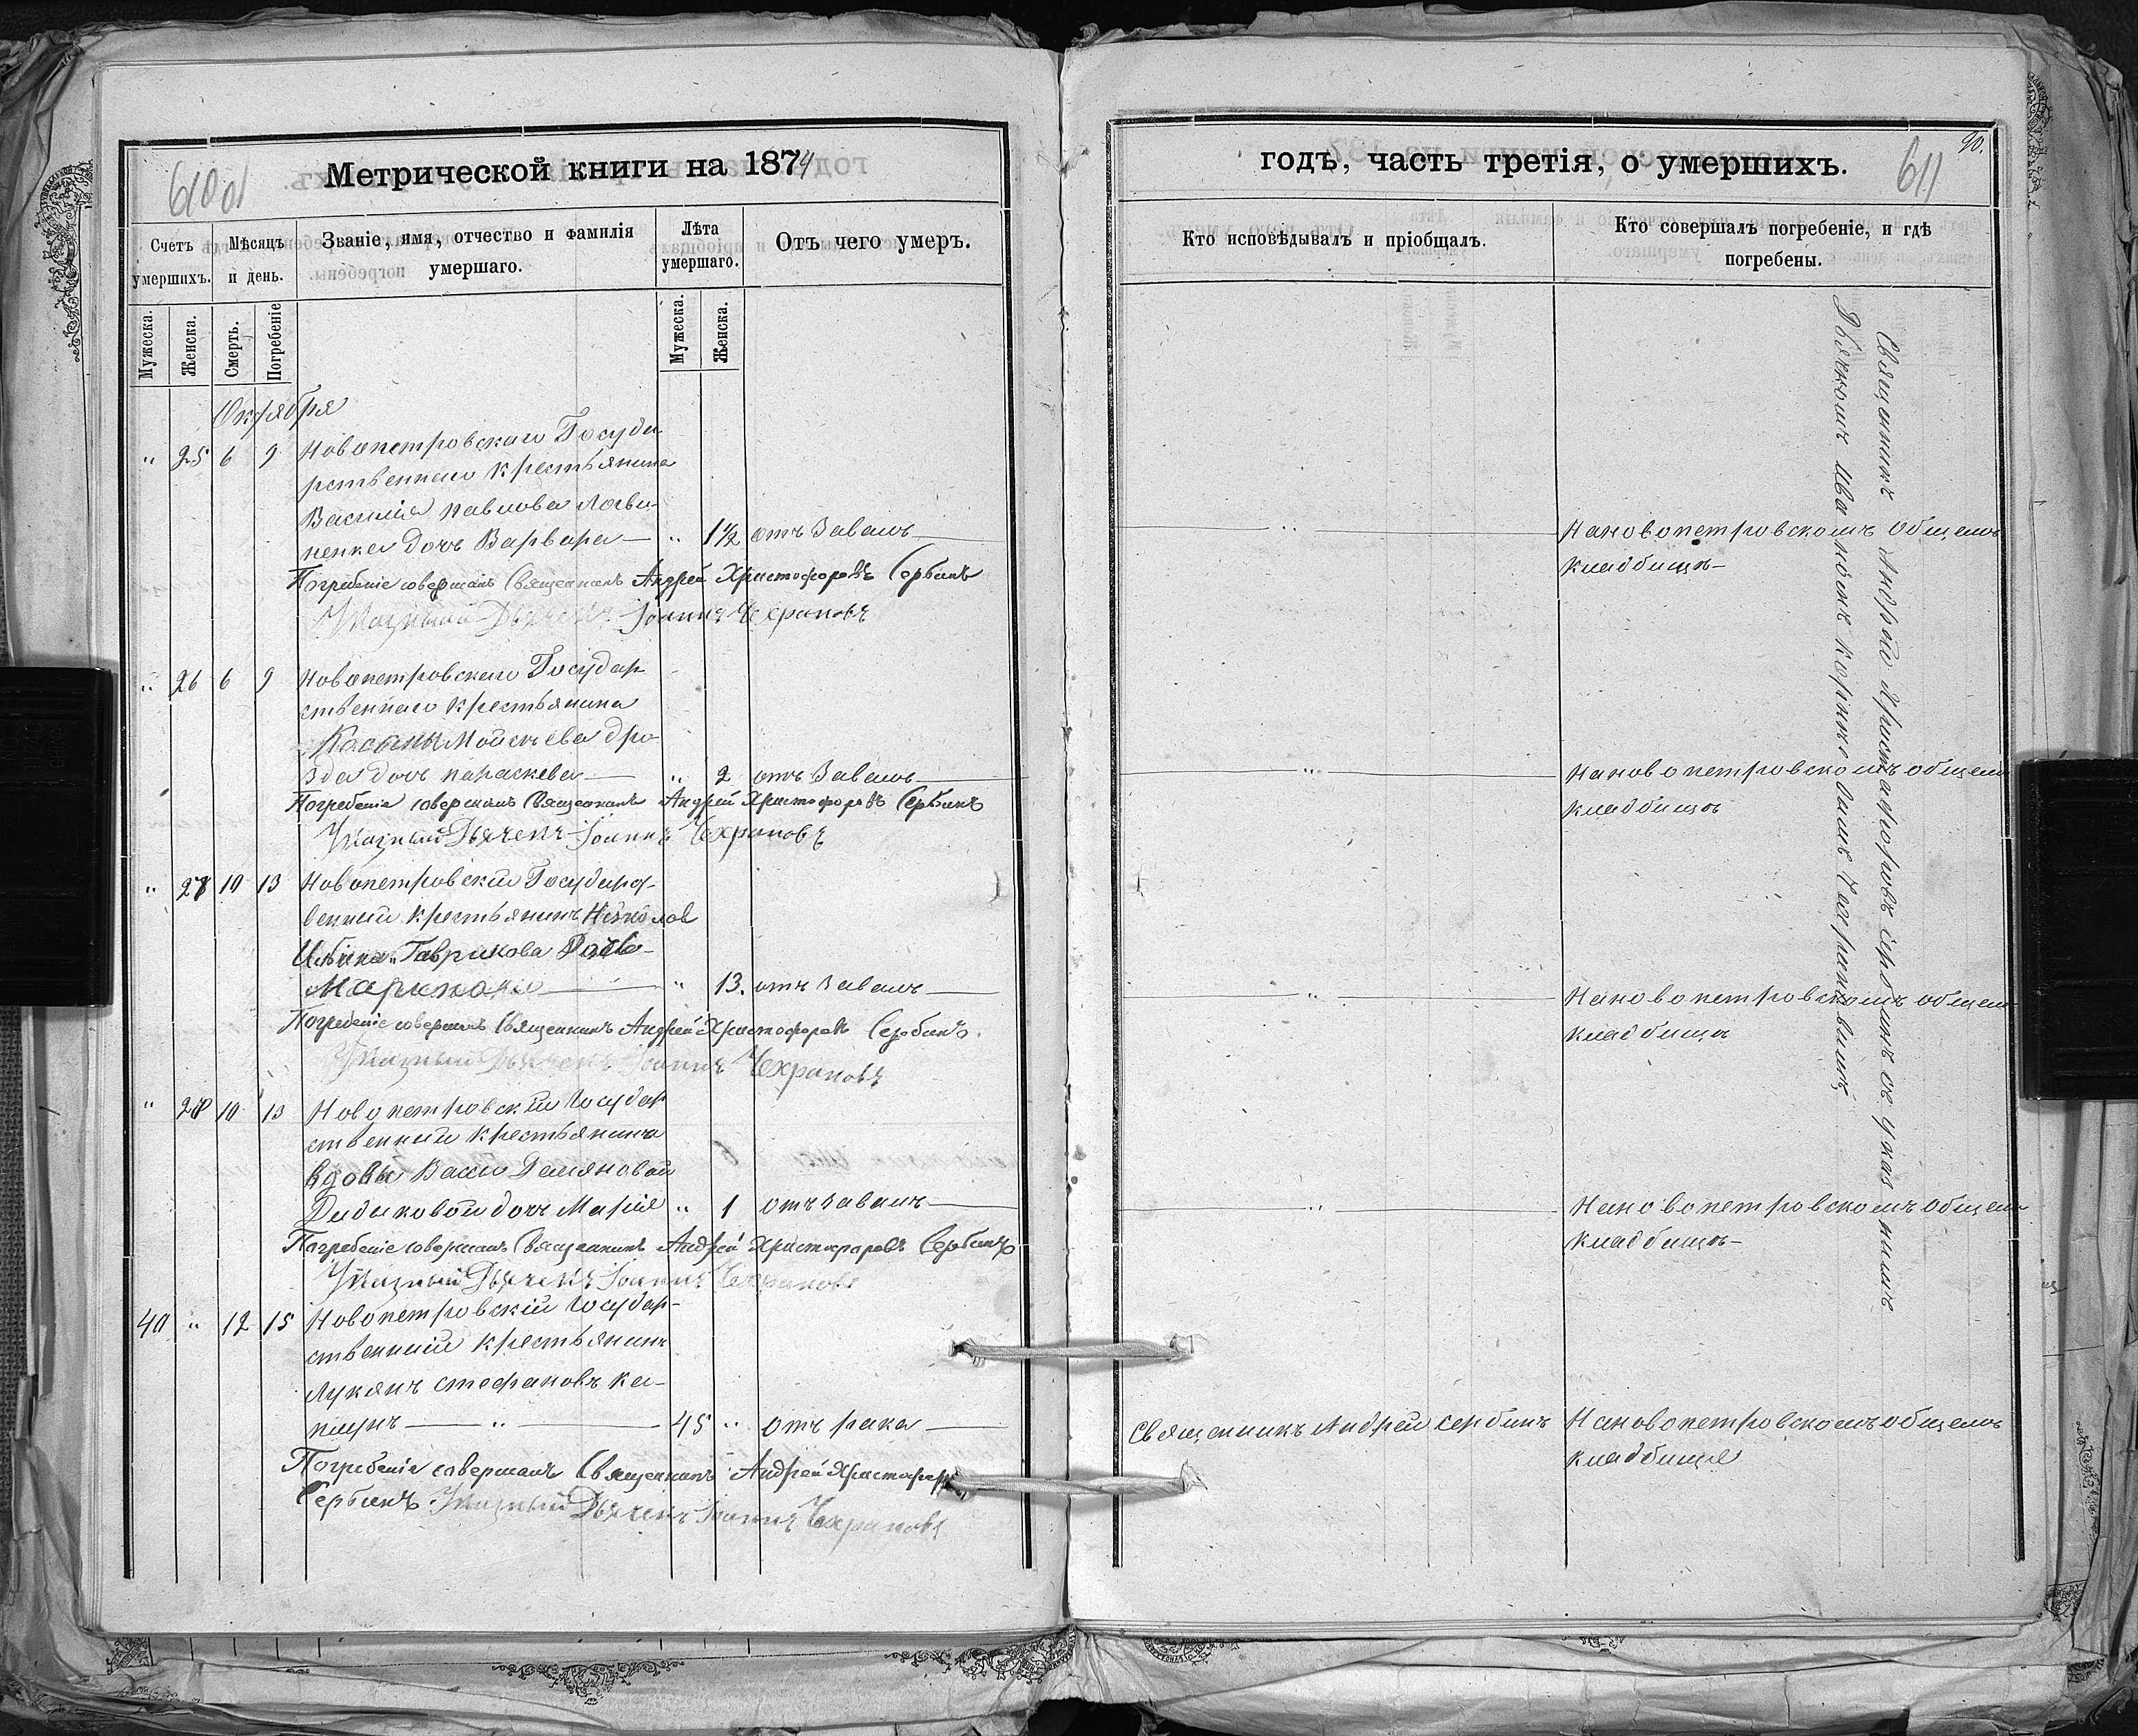 Метрической книги на 1874
Счетъ умершихъ.
Мѣсяцъ и день.
Званіе, имя, отчество и фамилія умершаго.
Лѣта умершаго.
Отъ чего умеръ.
Мужеска.
Женска.
Смерть.
Погребеніе
Мужеска.
Женска.
Октября
" 25 6 9 Новопетровскаго Госуда
рственнаго крестьянина
Василія Павлова Логви-
ненка дочь Варвара — " 1½ отъ Завалъ
Погребеніе совершалъ Священникъ Андрей Христофоровъ Сербинъ
Указный Дьячекъ Іоаннъ Чехрановъ
" 26 6 9 Новопетровскаго Государ
ственнаго крестьянина
Мойсеева Дро
зда дочь Параскева — " 2 отъ Завалъ
Погребеніе совершалъ Священникъ Андрей Христофоровъ Сербинъ
Указный Дьячекъ Іоаннъ Чехрановъ
" 27 10 13 Новопетровскій Государ-
венный крестьянинъ
Гаврикова
" 13. отъ Завалъ
Погребеніе совершалъ Священникъ Андрей Христофоровъ Сербинъ.
Указный Дьячекъ Іоаннъ Чехрановъ
" 28 10 13 Новопетровскій Государ
ственный крестьянина
вдовы Демяновой
Дидиковой дочь Марія " 1 отъ Завалъ
Погребеніе совершалъ Священникъ Андрей Христофоровъ Сербинъ
Указный Дьячекъ Іоаннъ Чехрановъ
40 " 12 15 Новопетровскій Государ-
ственный крестьянинъ
Лукянъ Стефановъ Ка-
пщукъ — " — 45 " отъ рака
Погребеніе совершалъ Священникъ Андрей Христофоров
Сербинъ. Указный Дьячекъ Іоаннъ Чехрановъ
годѣ, часть третія, о умершихъ.
611
90.
Кто исповѣдывалъ и пріобщалъ.
Кто совершалъ погребеніе, и гдѣ погребены.
" На новопетровскомъ общемъ
кладбищѣ
" На новопетровскомъ общем
кладбищѣ
" На новопетровскомъ общем
кладбищѣ
" На новопетровскомъ общем
кладбищѣ
Священникъ Андрей Сербинъ На новопетровскомъ общемъ
кладбище
Священникъ Андрей Христофоровъ Сербинъ съ указнымъ